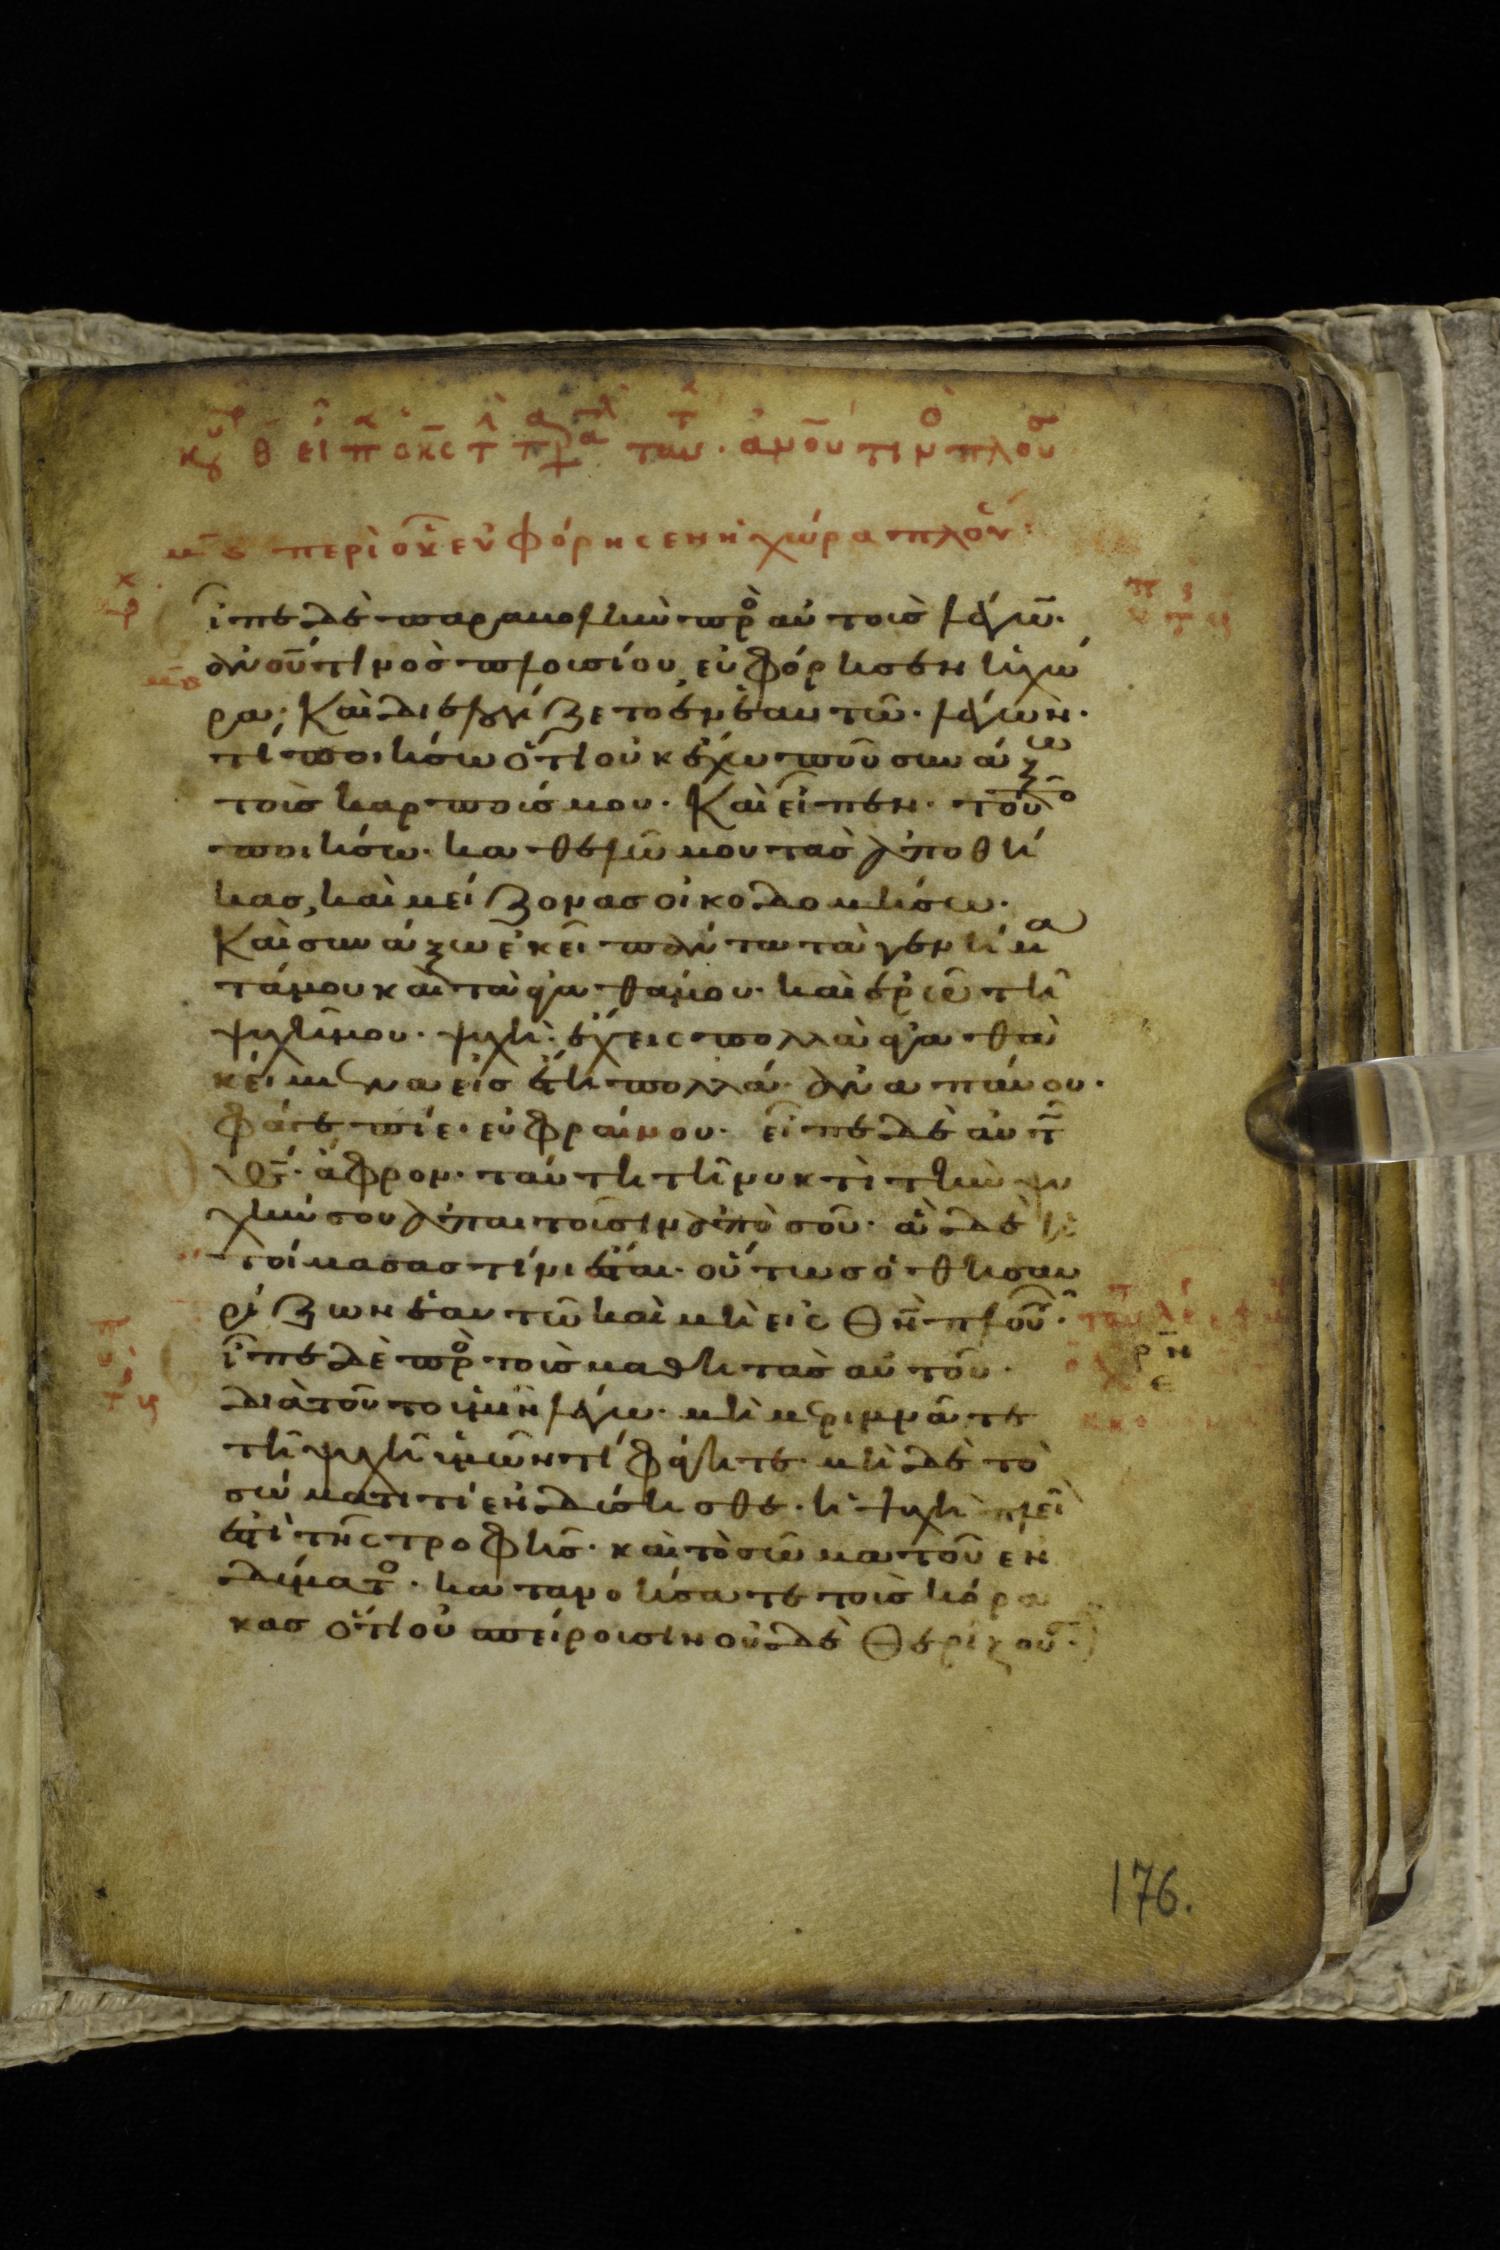 περὶ οὗ εὐφόρησεν ἡ χώρα πλου
ἶπε δὲ παραβολὴν πρὸ αὐτοὺσ λέγω
ἀνου τινὸσ πλουσίου εὐφόρησεν ἡ χώ
ρα· Καὶ διελογίζετο ἐν ἑαυτῶ· λέγων·
τί ποιήσω ὅτι οὐκ ἔχω ποῦ συνάξω
τοὺσ καρπούσ μου· Καὶ εἶπεν· τοῦτο
ποιήσω· καθελῶ μου τὰσ ἀποθή
κασ, καὶ μείζονασ οἰκοδομήσω·
Καὶ συνάξω ἐκεῖ πάντα τὰ γενήμα
τά μου καὶ τὰ ἀγαθά μου· καὶ ἐρῶ τῆ
ψυχῆ μου· ψυχὴ· ἔχεις πολλὰ ἀγαθὰ
κείμενα εἰσ ἔτη πολλά· ἀναπάυου·
φάγε πίε· εὐφραίνου· εἶπε δὲ αὐτ
ὁ θς· ἄφρον· ταύτη τῆ νυκτὶ τὴν ψυ
χήν σου ἀπαιτοῦσιν ἀπὸ σοῦ· ἃ δὲ ἡ
τοίμασασ τίνι ἔσται· οὕτωσ ὁ θησαυ
ρίζων ἑαυτῶ καὶ μὴ εἰς θν πλουτ
ἶπε δὲ πρὸ τοὺσ μαθητὰσ αὐτοῦ·
διὰ τοῦτο ὑμῖν λέγω· μὴ μεριμνᾶτε
τῆ ψυχῆ ὑμῶν τί φάγητε· μὴ δὲ τὸ
σώματι τί ἐνδύσησθε· ἡ ψυχὴ πλεῖ
ἐστὶ τῆς τροφῆσ· καὶ τὸ σῶμα τοῦ ἐν
δύματο· κατανοήσατε τοὺσ κόρα
κασ ὅτι οὐ σπείρουσιν οὐδὲ θερίζου
176.